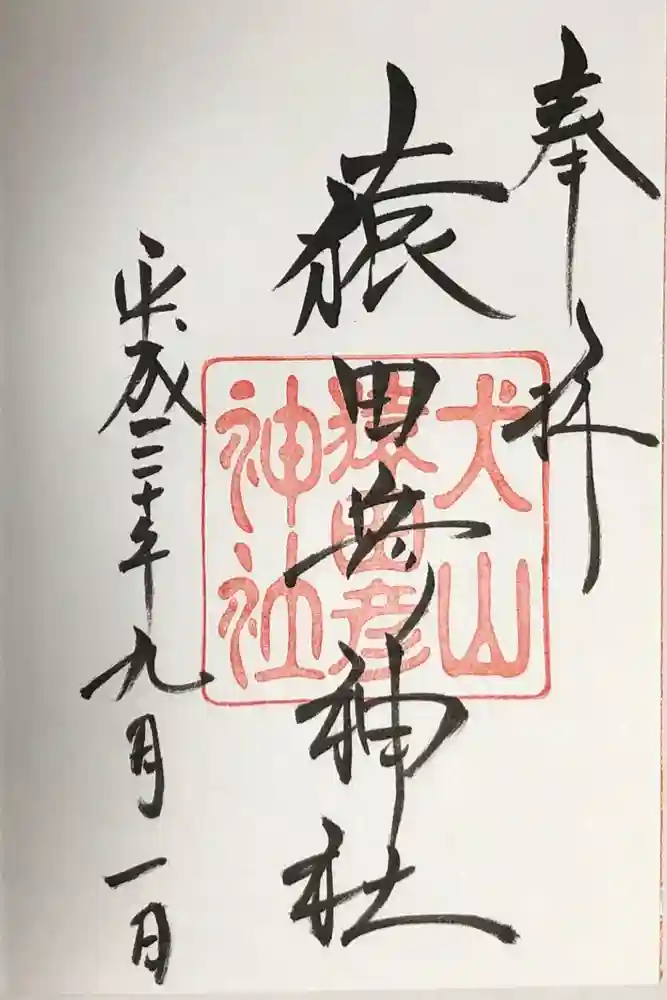 奉拝
猿田彦神社
平成三十年九月一日
犬山
猿田彦
神社